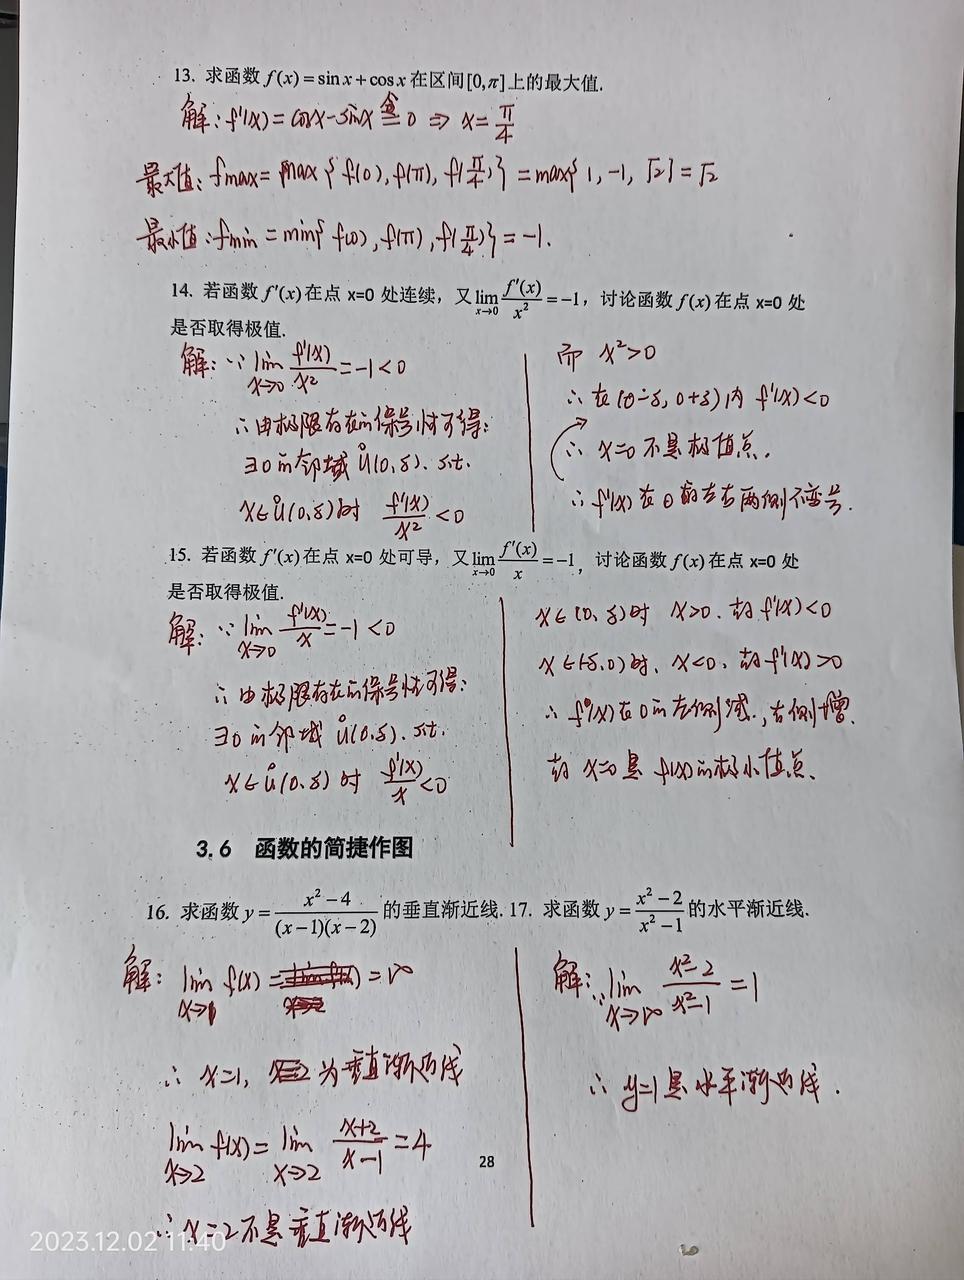 13. 求函数 f(x)=sin x+cos x 在区间[0,π]上的最大值.
解: f'(x)= cosx-sinx 令= 0 ⇒ x= π/4
最大值: fmax= max{ f(0), f(π), f(π/4)} = max{ 1, -1, √2}=√2
最小值: fmin = min{ f(0), f(π), f(π/4)}=-1.
14. 若函数 f'(x)在点 x=0 处连续，又 lim x→0 f'(x)/x² =-1，讨论函数 f(x)在点 x=0 处
是否取得极值.
解: ∵ lim x→0 f'(x)/x² =-1<0
∴由极限存在的保号性可得:
∃0的邻域 Ů(0,δ). s.t.
x∈Ů(0,δ)时 f'(x)/x² <0
而 x²>0
∴ 在(0-δ, 0+δ)内 f'(x)<0
∴ x=0 不是极值点.
∴ f'(x)在0的左右两侧不变号.
15. 若函数 f'(x)在点 x=0 处可导，又 lim x→0 f'(x)/x =-1，讨论函数 f(x)在点 x=0 处
是否取得极值.
解: ∵ lim x→0 f'(x)/x =-1<0
∴由极限存在的保号性可得:
∃0的邻域 Ů(0,δ). s.t.
x∈Ů(0,δ)时 f'(x)/x <0
x∈(0,δ)时 x>0. 故f'(x)<0
x∈(-δ,0)时, x<0. 故f'(x)>0
∴ f(x)在0的左侧减, 右侧增.
故 x=0是 f(x)的极小值点.
3.6 函数的简捷作图
16. 求函数 y= (x²-4)/((x-1)(x-2)) 的垂直渐近线. 17. 求函数 y= (x²-2)/(x²-1) 的水平渐近线.
解: lim x→1 f(x) = ∞
∴ x=1, 为垂直渐近线
lim x→2 f(x)= lim x→2 (x+2)/(x-1) =4
∴ x=2不是垂直渐近线
解: ∵ lim x→∞ (x²-2)/(x²-1) =1
∴ y=1是水平渐近线.
28
2023.12.02 11:40